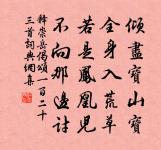 傾盡寶山寶
全身入荒草
若是鳳凰兒
不向那邊討
釋崇岳偈頌一百二十
三首詞典網集